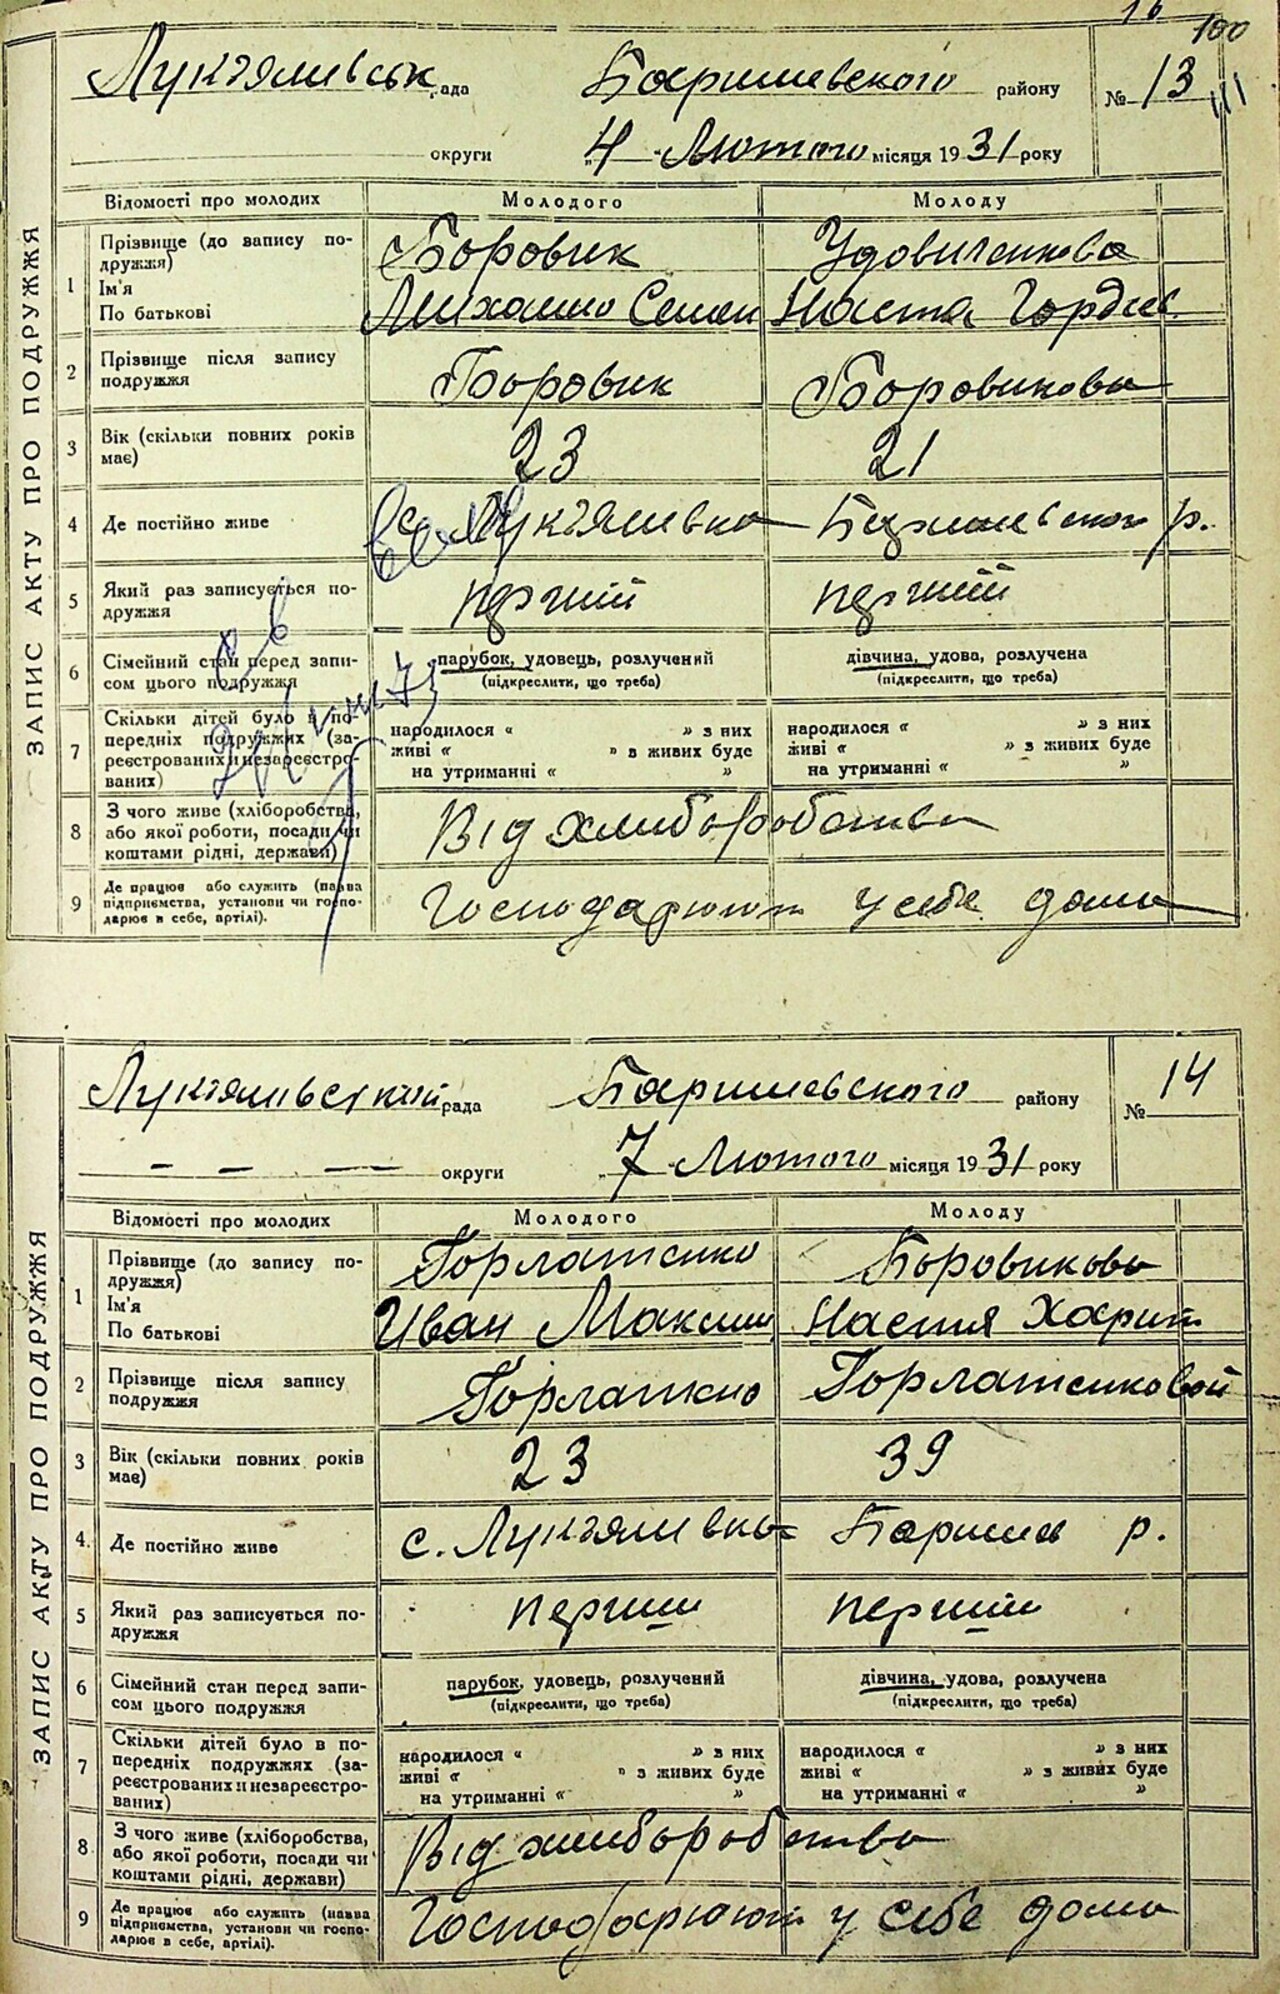 100
Лукъяливськ рада Баришевского району № 13
округи „4“ Лютого місяця 1931 року
ЗАПИС АКТУ ПРО ПОДРУЖЖЯ
Відомості про молодих Молодого Молоду
1 Прізвище (до запису по-дружжя) Боровик Удовиченкова
Ім'я
По батькові Михайло Семен Настя Гордев
2 Прізвище після запису подружжя Боровик Боровикова
3 Вік (скільки повних років має) 23 21
4 Де постійно живе с. Лукъяливка Баришевского р.
5 Який раз записується по-дружжя перший перший
6 Сімейний стан перед запи-сом цього подружжя парубок, удовець, розлучений дівчина, удова, розлучена
(підкреслити, що треба) (підкреслити, що треба)
7 Скільки дітей було в по-передніх подружжях (за-реєстрованих и незареєстро-ваних)
народилося „ ” з них народилося „ ” з них
живі „ ” з живих буде живі „ ” з живих буде
на утриманні „ ” на утриманні „ ”
8 З чого живе (хліборобства, або якої роботи, посади чи коштами рідні, держави) Від хлиборобства
9 Де працює або служить (назва підприємства, установи чи госпо-дарює в себе, артілі). Господарюют у себе дома
Лукъяливской рада Баришевского району № 14
– – – – округи „7“ Лютого місяця 1931 року
ЗАПИС АКТУ ПРО ПОДРУЖЖЯ
Відомості про молодих Молодого Молоду
1 Прізвище (до запису по-дружжя) Горлатенко Боровикова
Ім'я
По батькові Иван Максим Настя Харит
2 Прізвище після запису подружжя Горлаткно Горлатенковой
3 Вік (скільки повних років має) 23 39
4. Де постійно живе с. Лукъяливка Баришев р.
5 Який раз записується по-дружжя перший перший
6 Сімейний стан перед запи-сом цього подружжя парубок, удовець, розлучений дівчина, удова, розлучена
(підкреслити, що треба) (підкреслити, що треба)
7 Скільки дітей було в по-передніх подружжях (за-реєстрованих и незареєстро-ваних)
народилося „ ” з них народилося „ ” з них
живі „ ” з живих буде живі „ ” з живих буде
на утриманні „ ” на утриманні „ ”
8 З чого живе (хліборобства, або якої роботи, посади чи коштами рідні, держави) Від хлиборобства
9 Де працює або служить (назва підприємства, установи чи госпо-дарює в себе, артілі). Господарюют у себе дома